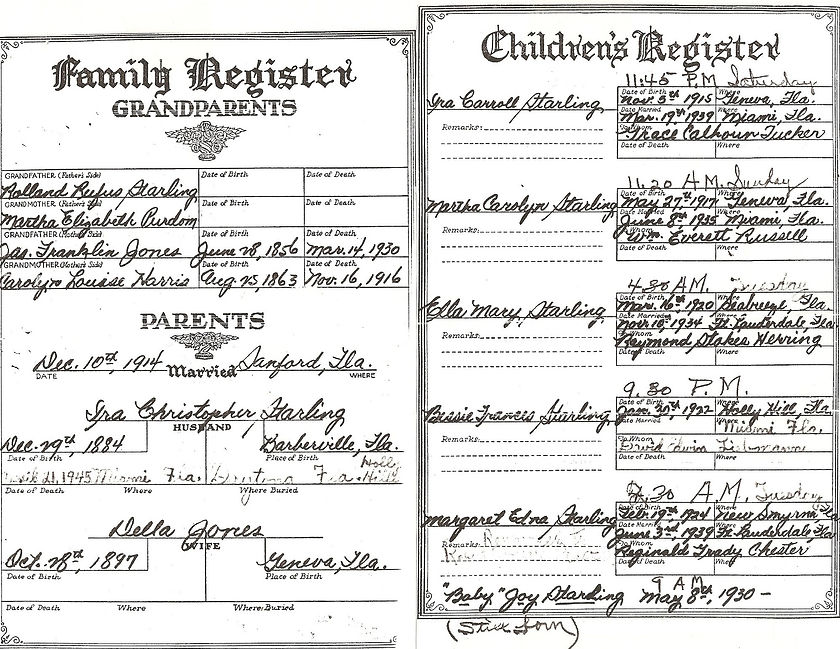 Family Register
GRANDPARENTS
GRANDFATHER (Father's Side) Date of Birth Date of Death
Rolland Rufus Starling
GRANDMOTHER (Father's Side) Date of Birth Date of Death
Martha Elizabeth Purdom
GRANDFATHER (Mother's Side) Date of Birth Date of Death
Jas. Franklin Jones June 28, 1856 Mar. 14, 1930
GRANDMOTHER (Mother's Side) Date of Birth Date of Death
Carolyn Louise Harris Aug. 25, 1863 Nov. 16, 1916
PARENTS
Dec. 10th, 1914 Married Sanford, Fla.
DATE WHERE
Ira Christopher Starling
HUSBAND
Dec. 29th, 1884 Barberville, Fla.
Date of Birth Place of Birth
21, 1945 Miami Fla. Daytona Fla. Holly Hill
Date of Death Where Where Buried
Della Jones
WIFE
Oct. 28th, 1897 Geneva, Fla.
Date of Birth Place of Birth
Date of Death Where Where Buried
Children's Register
11:45 P.M. Saturday
Date of Birth Where
Ira Carroll Starling Nov. 5th 1915 Geneva, Fla.
Date Married Where
Mar. 19th 1939 Miami, Fla.
Remarks: To Whom
Grace Calhoun Tucker
Date of Death Where
11.20 A.M. Sunday
Date of Birth Where
Martha Carolyn Starling May 27th 1917 Geneva Fla.
Date Married Where
June 8th 1935 Miami, Fla.
Remarks: To Whom
Wm. Everett Russell
Date of Death Where
4.30 A.M. Tuesday
Date of Birth Where
Ella Mary Starling Mar. 16th 1920 Seabreeze, Fla.
Date Married Where
Nov. 10th, 1934 Ft. Lauderdale, Fla.
Remarks: To Whom
Raymond Stokes Herring
Date of Death Where
9.30 P.M.
Date of Birth Where
Bessie Francis Starling Jan. 30th 1922 Holly Hill, Fla.
Date Married Where
Miami Fla.
Remarks: To Whom
David Edwin
Date of Death Where
7.30 A.M. Tuesday
Date of Birth Where
Margaret Edna Starling Feb. 19th 1924 New Smyrna, Fla.
Date Married Where
June 3rd 1939 Ft. Lauderdale Fla.
Remarks: To Whom
Reginald Grady Chester
Date of Death Where
9 A.M.
"Baby" Joy Starling May 8th, 1930 -
(Still born)